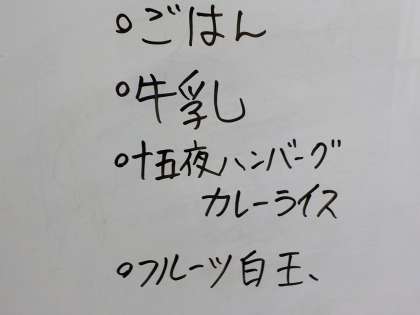 ○ごはん
○牛乳
○十五夜ハンバーグ
カレーライス
○フルーツ白玉、